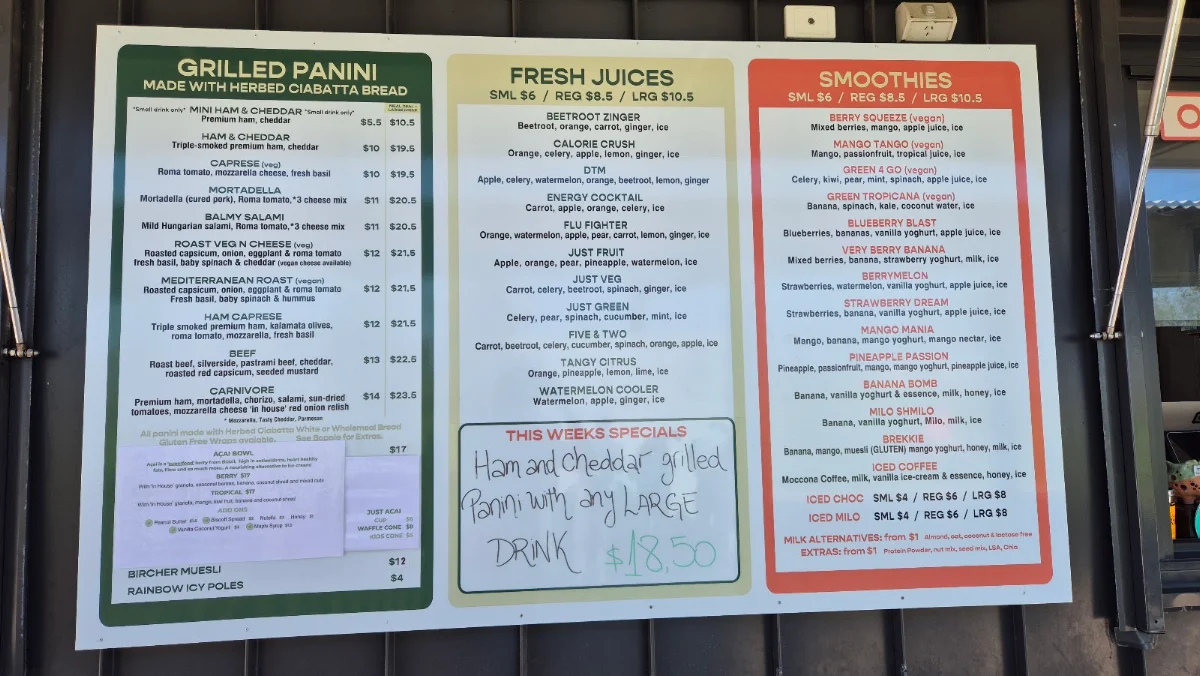 GRILLED PANINI
MADE WITH HERBED CIABATTA BREAD
"Small drink only" MINI HAM & CHEDDAR "Small drink only"
Premium ham, cheddar $5.5 $10.5
HAM & CHEDDAR
Triple-smoked premium ham, cheddar $10 $19.5
CAPRESE (veg)
Roma tomato, mozzarella cheese, fresh basil $10 $19.5
MORTADELLA
Mortadella (cured pork), Roma tomato,*3 cheese mix $11 $20.5
BALMY SALAMI
Mild Hungarian salami, Roma tomato,*3 cheese mix $11 $20.5
ROAST VEG N CHEESE (veg)
Roasted capsicum, onion, eggplant & roma tomato $12 $21.5
fresh basil, baby spinach & cheddar (vegan cheese available)
MEDITERRANEAN ROAST (vegan)
Roasted capsicum, onion, eggplant & roma tomato $12 $21.5
Fresh basil, baby spinach & hummus
HAM CAPRESE
Triple smoked premium ham, kalamata olives, $12 $21.5
roma tomato, mozzarella, fresh basil
BEEF
Roast beef, silverside, pastrami beef, cheddar, $13 $22.5
roasted red capsicum, seeded mustard
CARNIVORE
Premium ham, mortadella, chorizo, salami, sun-dried $14 $23.5
tomatoes, mozzarella cheese 'in house' red onion relish
* Mozzarella, Tasty Cheddar, Parmesan
All panini made with Herbed Ciabatta White or Wholemeal Bread
Gluten Free Wraps available. See Board for Extras.
$17
AÇAI BOWL
BERRY $17
With 'in House' granola, seasonal berries, banana, coconut shred and mixed nuts
TROPICAL $17
With 'in House' granola, mango, kiwi fruit, banana and coconut shred
ADD ONS
JUST ACAI
CUP
WAFFLE CONE
KIDS CONE
BIRCHER MUESLI $12
RAINBOW ICY POLES $4
FRESH JUICES
SML $6 / REG $8.5 / LRG $10.5
BEETROOT ZINGER
Beetroot, orange, carrot, ginger, ice
CALORIE CRUSH
Orange, celery, apple, lemon, ginger, ice
DTM
Apple, celery, watermelon, orange, beetroot, lemon, ginger
ENERGY COCKTAIL
Carrot, apple, orange, celery, ice
FLU FIGHTER
Orange, watermelon, apple, pear, carrot, lemon, ginger, ice
JUST FRUIT
Apple, orange, pear, pineapple, watermelon, ice
JUST VEG
Carrot, celery, beetroot, spinach, ginger, ice
JUST GREEN
Celery, pear, spinach, cucumber, mint, ice
FIVE & TWO
Carrot, beetroot, celery, cucumber, spinach, orange, apple, ice
TANGY CITRUS
Orange, pineapple, lemon, lime, ice
WATERMELON COOLER
Watermelon, apple, ginger, ice
THIS WEEKS SPECIALS
Ham and Cheddar grilled
Panini with any LARGE
DRINK $18,50
SMOOTHIES
SML $6 / REG $8.5 / LRG $10.5
BERRY SQUEEZE (vegan)
Mixed berries, mango, apple juice, ice
MANGO TANGO (vegan)
Mango, passionfruit, tropical juice, ice
GREEN 4 GO (vegan)
Celery, kiwi, pear, mint, spinach, apple juice, ice
GREEN TROPICANA (vegan)
Banana, spinach, kale, coconut water, ice
BLUEBERRY BLAST
Blueberries, bananas, vanilla yoghurt, apple juice, ice
VERY BERRY BANANA
Mixed berries, banana, strawberry yoghurt, milk, ice
BERRYMELON
Strawberries, watermelon, vanilla yoghurt, apple juice, ice
STRAWBERRY DREAM
Strawberries, banana, vanilla yoghurt, apple juice, ice
MANGO MANIA
Mango, banana, mango yoghurt, mango nectar, ice
PINEAPPLE PASSION
Pineapple, passionfruit, mango, mango yoghurt, pineapple juice, ice
BANANA BOMB
Banana, vanilla yoghurt & essence, milk, honey, ice
MILO SHMILO
Banana, vanilla yoghurt, Milo, milk, ice
BREKKIE
Banana, mango, muesli (GLUTEN) mango yoghurt, honey, milk, ice
ICED COFFEE
Moccona Coffee, milk, vanilla ice-cream & essence, honey, ice
ICED CHOC SML $4 / REG $6 / LRG $8
ICED MILO SML $4 / REG $6 / LRG $8
MILK ALTERNATIVES: from $1 Almond, oat, coconut & lactose free
EXTRAS: from $1 Protein Powder, nut mix, seed mix, LSA, Chia